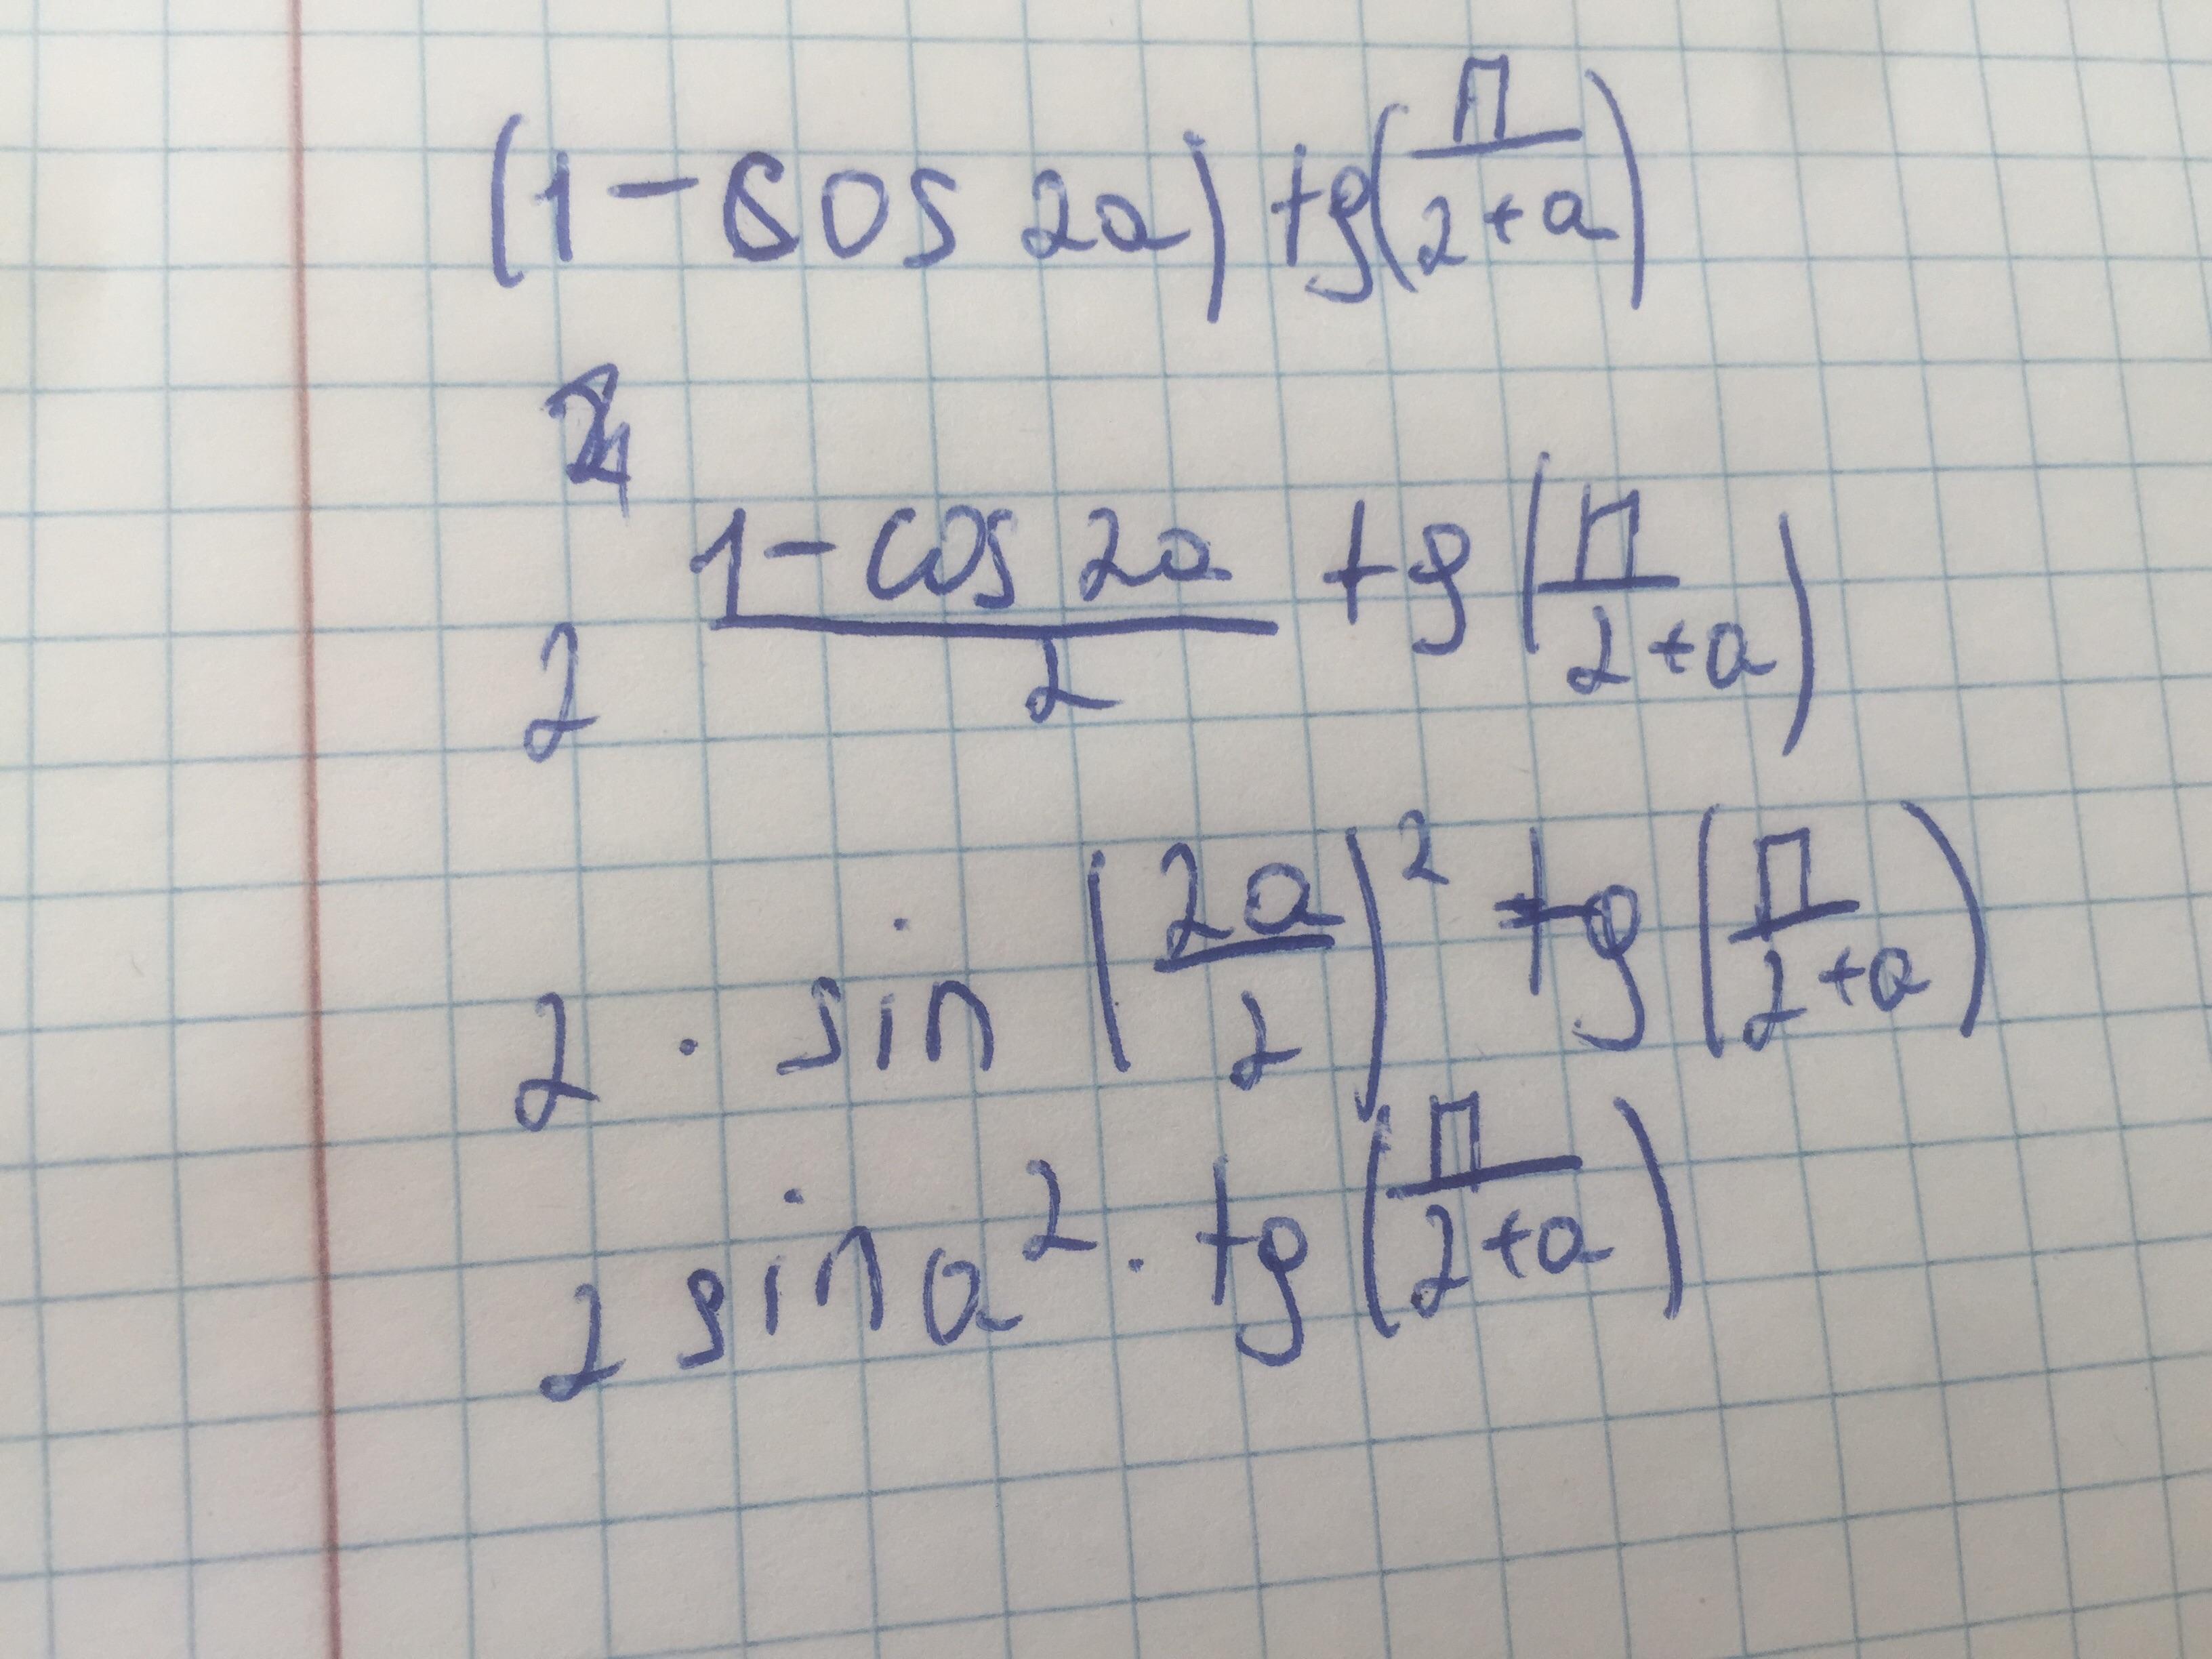 (1 - cos 2a) tg(П/(2+a))
2 (1 - cos 2a)/2 tg(П/(2+a))
2 · sin (2a/2)² tg(П/(2+a))
2 sin a² · tg(П/(2+a))